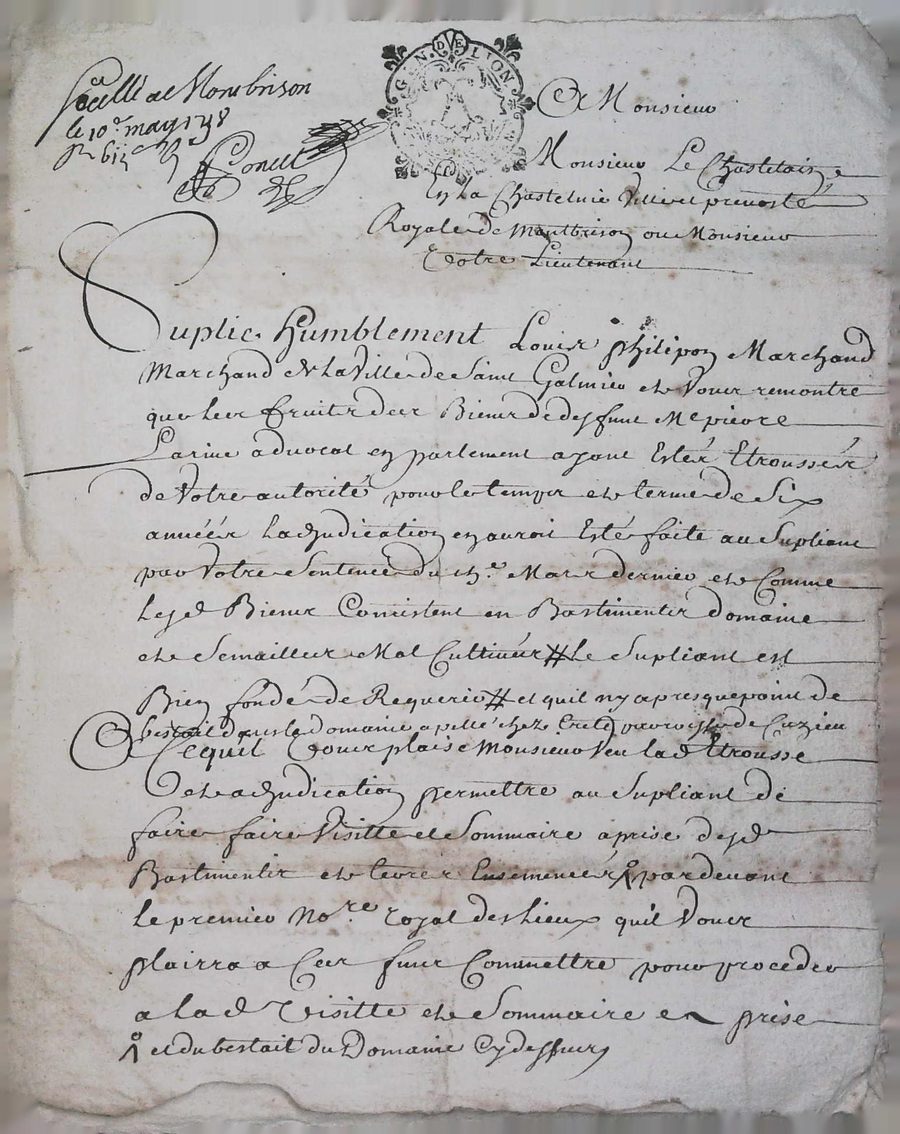 Scellé a Montbrison
le 10e may 1718
GEN DE LION
A Monsieur
Monsieur Le Chastelain
En La Chastelnie Ville et prevosté
Royale de Montbrison ou Monsieur
Votre Lieutenant
Suplie Humblement Louis philipon Marchand
Marchand de la Ville de Saint Galmier et Vous remontre
que les fruits des Biens de deffunt Me pierre
Larive advocat en parlement ayant Estés Etroussés
de Votre autorité pour le temps et terme de Six
années Ladjudication en auroit Esté faite au Supliant
par Votre Sentence du Mars dernier et Comme
Lesd Biens Consistent en Bastimentz domaine
et Semailles Mal Cultivés # Le Supliant est
Bien fondé de Requerir # et quil ny a presque point de
bestail dans le domaine apellé chez paroisse de Cuzieu
Ce quil Vous plaise Monsieur Veu lad Etrousse
et adjudication permettre au Supliant de
faire faire Visitte et Sommaire aprise desd
Bastimentz et terres Ensemencées pardevant
le premier Nore royal des Lieux quil Vous
plairra a Ces fins Commettre pour proceder
a lad Visitte et Sommaire en prise
et du bestail du Domaine Cy dessus